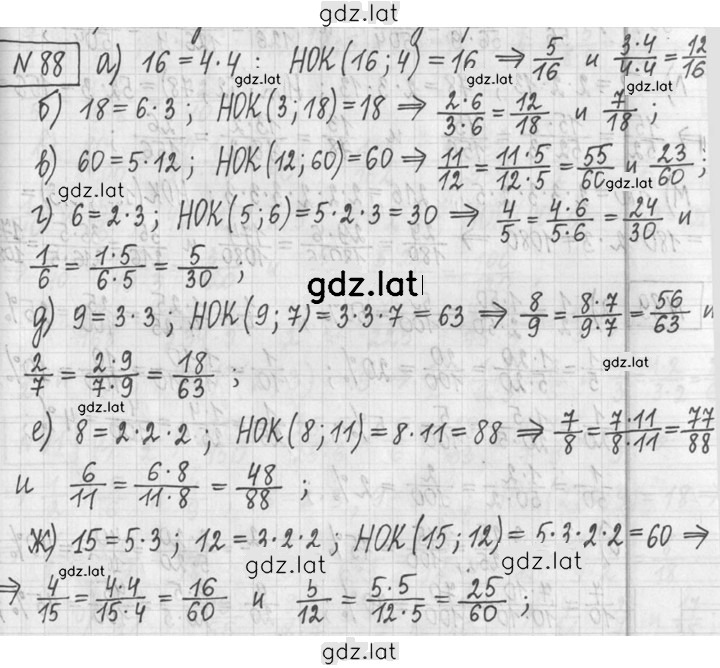 gdz.lat
N 88 а) 16 = 4·4 : НОК(16; 4) = 16 ⇒ 5/16 и 3·4/4·4 = 12/16
gdz.lat gdz.lat
б) 18 = 6·3 ; НОК(3; 18) = 18 ⇒ 2·6/3·6 = 12/18 и 7/18 ;
в) 60 = 5·12 ; НОК(12; 60) = 60 ⇒ 11/12 = 11·5/12·5 = 55/60 и 23/60 ;
gdz.lat gdz.lat
г) 6 = 2·3 ; НОК(5; 6) = 5·2·3 = 30 ⇒ 4/5 = 4·6/5·6 = 24/30 и
1/6 = 1·5/6·5 = 5/30 ;
gdz.lat
д) 9 = 3·3 ; НОК(9; 7) = 3·3·7 = 63 ⇒ 8/9 = 8·7/9·7 = 56/63 и
gdz.lat
2/7 = 2·9/7·9 = 18/63 ;
gdz.lat
е) 8 = 2·2·2 ; НОК(8; 11) = 8·11 = 88 ⇒ 7/8 = 7·11/8·11 = 77/88
и 6/11 = 6·8/11·8 = 48/88 ;
ж) 15 = 5·3 ; 12 = 3·2·2 ; НОК(15; 12) = 5·3·2·2 = 60 ⇒
gdz.lat gdz.lat gdz.lat
⇒ 4/15 = 4·4/15·4 = 16/60 и 5/12 = 5·5/12·5 = 25/60 ;
gdz.lat